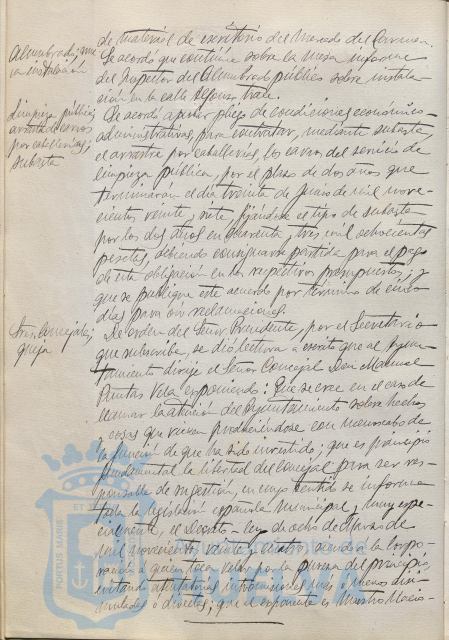 de material de escritorio del Mercado del Carmen.
Alumbrado; nue
va instalación
Se acordó que continúe sobre la mesa informe
del Inspector del Alumbrado público sobre instala-
ción en la calle Alfonso trece.
Limpieza pública;
arrastre de carros
por caballerías;
subasta
Se acordó aprobar pliego de condiciones económico-
administrativas, para contratar, mediante subasta,
el arrastre por caballerías, los carros del servicio de
limpieza pública, por el plazo de dos años que
terminarán el día treinta de Junio de mil nove-
cientos veinte y siete, fijándose el tipo de subasta
por los dos años en cuarenta y tres mil ochocientas
pesetas, debiendo consignarse partida para el pago
de esta obligación en los respectivos presupuestos, y
que se publique este acuerdo por término de cinco
días para oir reclamaciones.
Sres. Concejales;
queja
De orden del Señor Presidente, por el Secretario
que subscribe, se dió lectura a escrito que al Ayun-
tamiento dirije el Señor Concejal Don Manuel
Puntas Vela exponiendo: Que se cree en el caso de
llamar la atención del Ayuntamiento sobre hechos
y cosas que vienen produciéndose con menoscabo de
la función de que ha sido investido; que es principio
fundamental la libertad del Concejal para ser res-
ponsable de su gestión, en cuyo sentido se informa
toda la legislación española Municipal y muy espe-
cialmente, el Decreto-ley de ocho de Marzo de
mil novecientos veinte y cuatro, siendo la Corpo-
ración a quien toca velar por la pureza del principio,
evitando intromisiones más o menos disi-
muladas o directas; que el exponente es Maestro Nacio-
PORTUS MARIE
ET